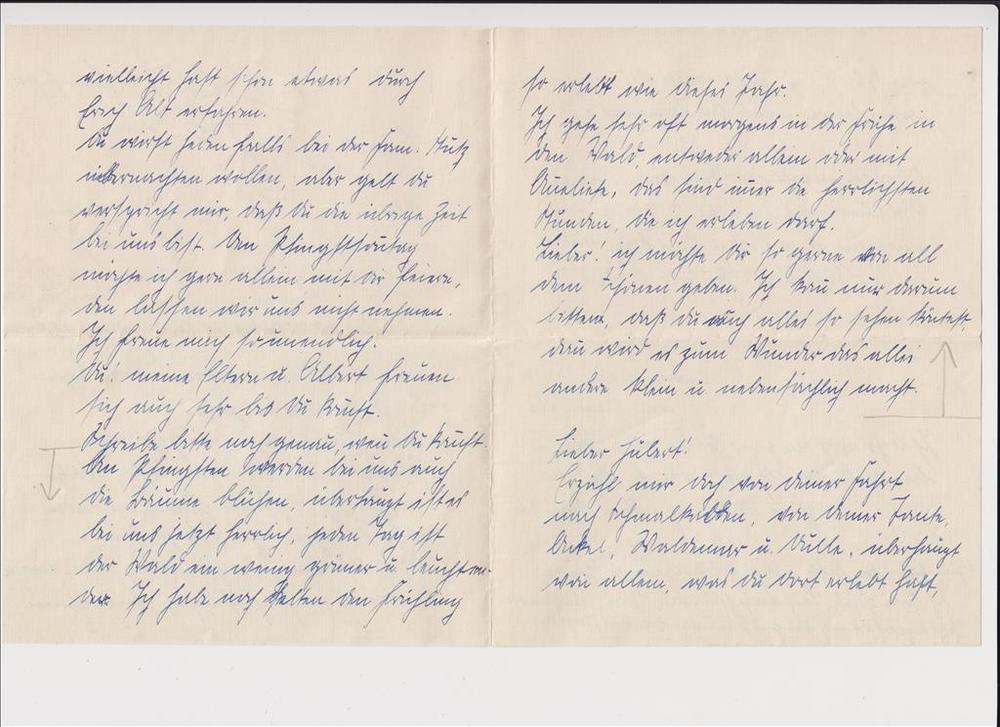 vielleicht hast schon etwas durch
Erich Alt erfahren.
Du wirst jeden falls bei der Fam. Stutz
übernachten wollen, aber gelt Du
versprichst mir, daß Du die übrige Zeit
bei uns bist. Den Pfingstsontag
möchte ich gern allein mit Dir feiern,
den lassen wir uns nicht nehmen.
Ich freue mich so unendlich.
Du! meine Eltern u. Albert freuen
sich auch sehr bis Du komst.
Schreibe bitte noch genau, wen Du komst.
An Pfingsten werden bei uns auch
die Bäume blühen, überhaupt ist es
bei uns jetzt herrlich, jeden Tag ist
der Wald ein wenig grüner u. leuchten-
der. Ich habe noch selten den Frühling
so erlebt wie dieses Jahr.
Ich gehe sehr oft morgens in der Frühe in
den Wald, entweder allein oder mit
Anneliese, das sind imer die herrlichsten
Stunden, die ich erleben darf.
Lieber! ich möchte Dir so gerne von all
dem Schönen geben. Ich kan nur darum
bitten, daß Du auch alles so sehen köntest,
dan wird es zum Wunder das alles
andere klein u. nebensächlich macht.
Lieber Hubert!
Erzähl mir doch von deiner Fahrt
nach Schmalkalden, von Deiner Tante,
Onkel, Waldemar u. Ulle, überhaupt
von allem, was du dort erlebt hast,